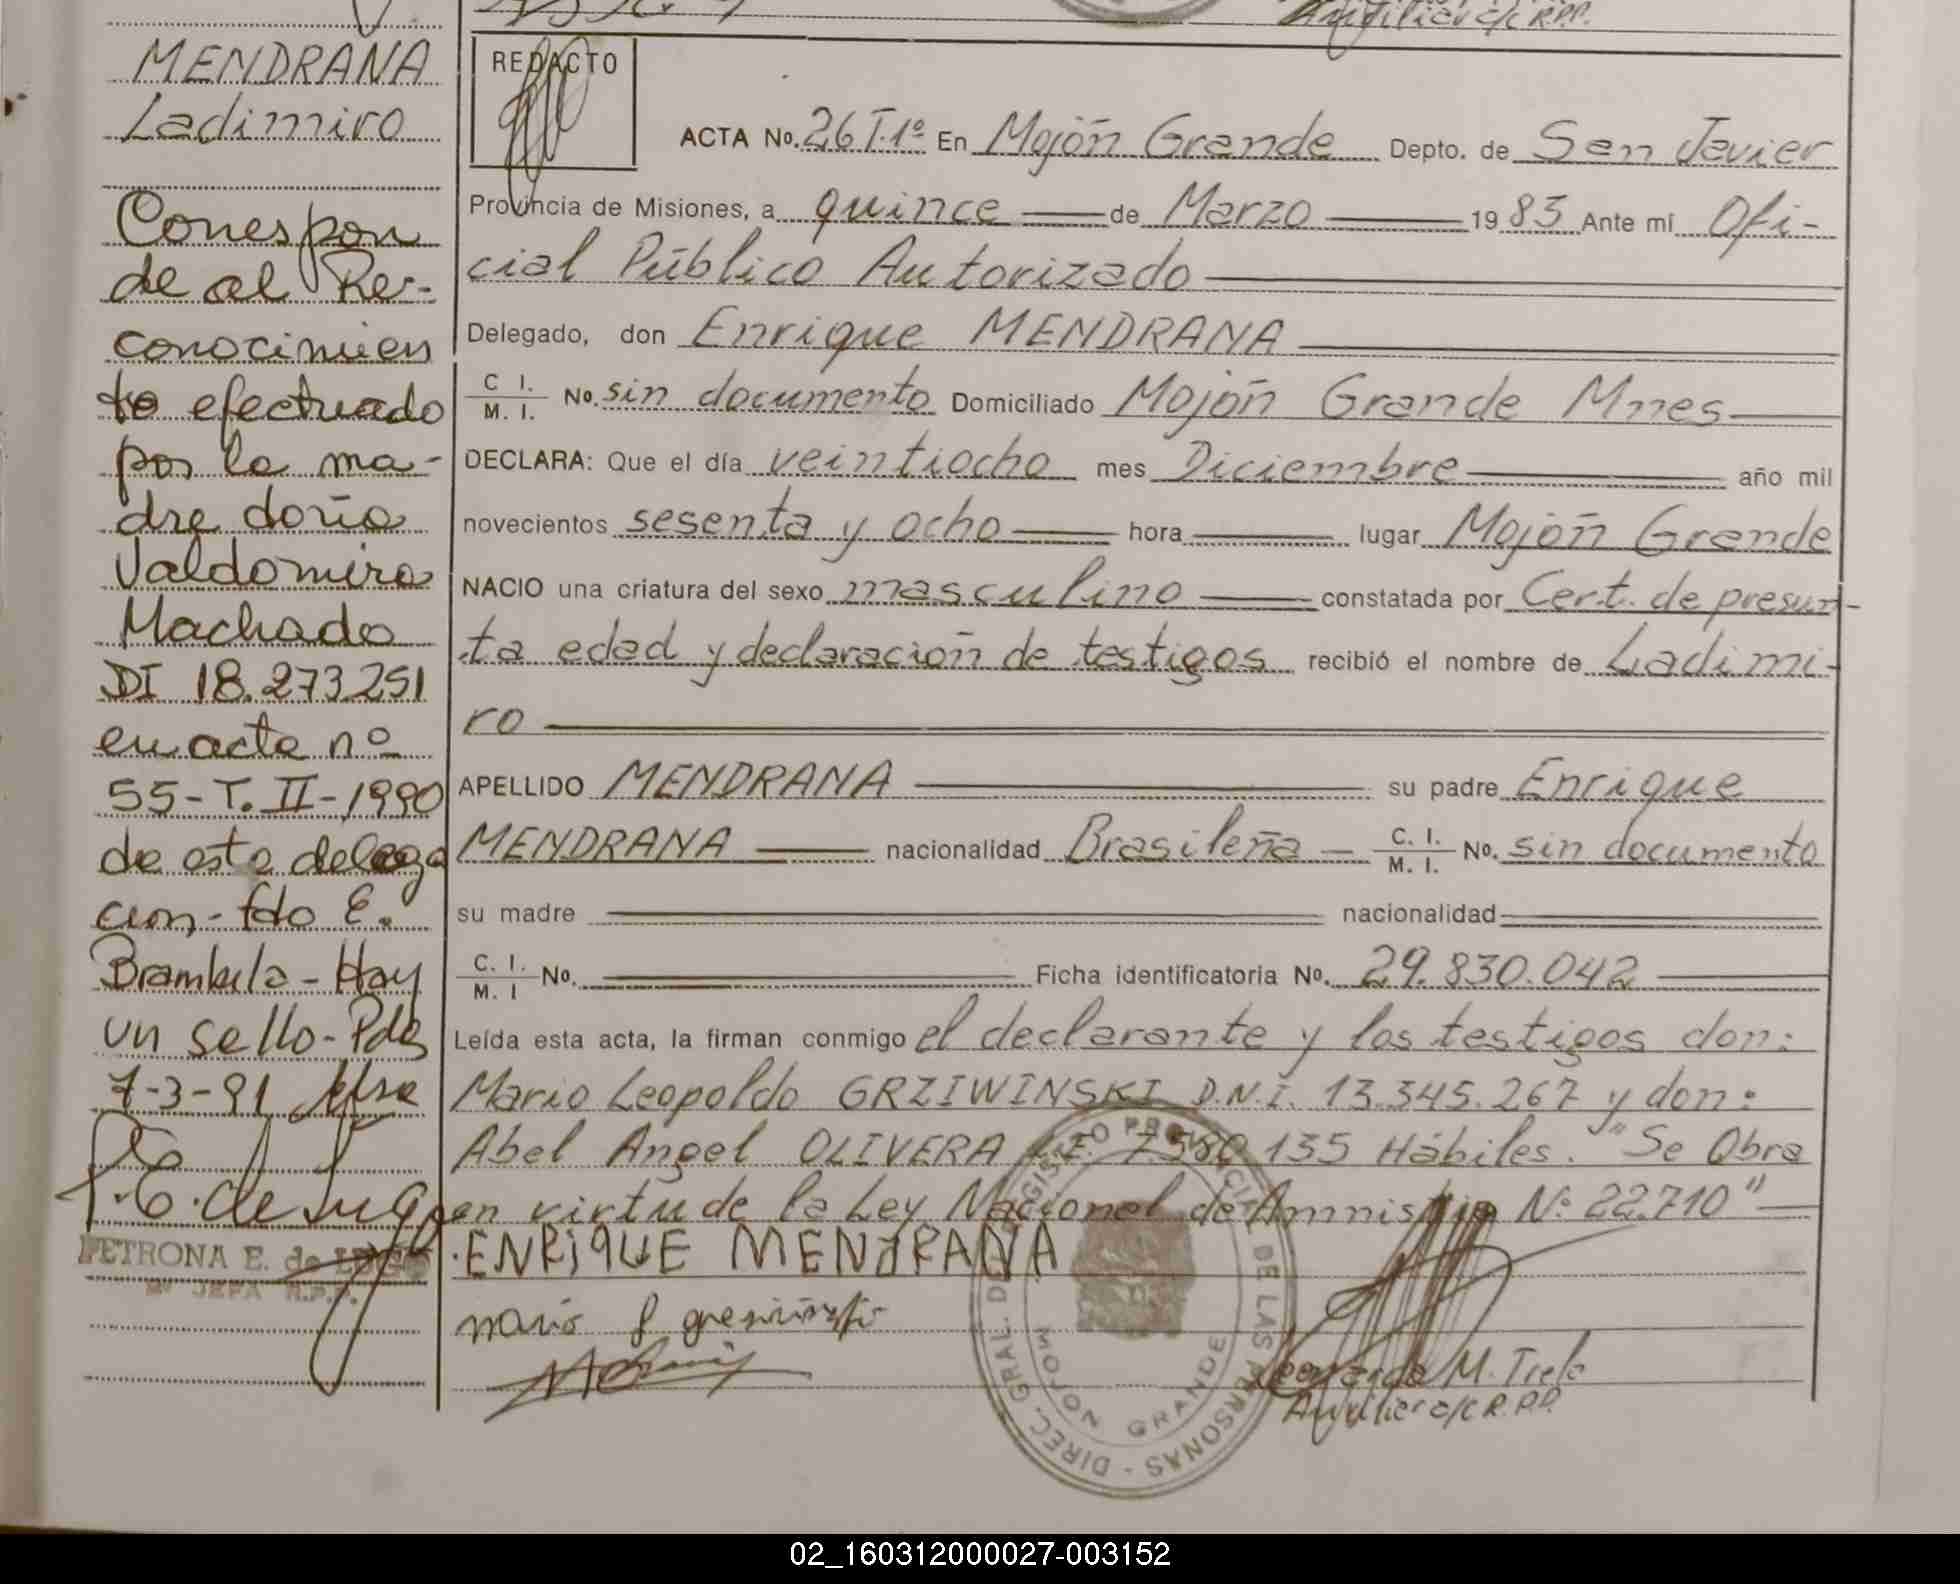 Auxiliar c/c R.P.P.
MENDRANA
Ladimiro
Corespon
de al Re-
conocimien
to efectuado
por la ma-
dre doña
Valdomira
Machado
DI 18.273.251
en acta nº
55-T.II-1990
de esta delega
cion-fdo E.
Brambila-Hay
un sello-Pdas
7-3-91
P.E. de Lugo
PETRONA E. de LUGO
JEFA R.P.P.
REDACTO
ACTA No. 26 T.1º En Mojón Grande Depto. de San Javier
Provincia de Misiones, a quince de Marzo 1983 Ante mí Ofi-
cial Público Autorizado
Delegado, don Enrique MENDRANA
C I. / M. I. No. sin documento Domiciliado Mojón Grande Mnes
DECLARA: Que el día veintiocho mes Diciembre año mil
novecientos sesenta y ocho hora lugar Mojón Grande
NACIO una criatura del sexo masculino constatada por Cert. de presun-
ta edad y declaración de testigos recibió el nombre de Ladimi-
ro
APELLIDO MENDRANA su padre Enrique
MENDRANA nacionalidad Brasileña C. I. / M. I. No. sin documento
su madre nacionalidad
C. I. / M. I No. Ficha identificatoria No. 29.830.042
Leída esta acta, la firman conmigo el declarante y los testigos don:
Mario Leopoldo GRZIWINSKI D.N.I. 13.345.267 y don:
Abel Angel OLIVERA L.E. 7.580.135 Hábiles. "Se Obra
en virtu de la Ley Nacional de Amnistia Nº 22.710"
ENRiqUE MENdRANA
DIREC. GRAL. DE REGISTRO PROVINCIAL DE LAS PERSONAS
MOJON GRANDE
Leonarda M. Trela
Auxiliar c/c R.P.P.
02_160312000027-003152